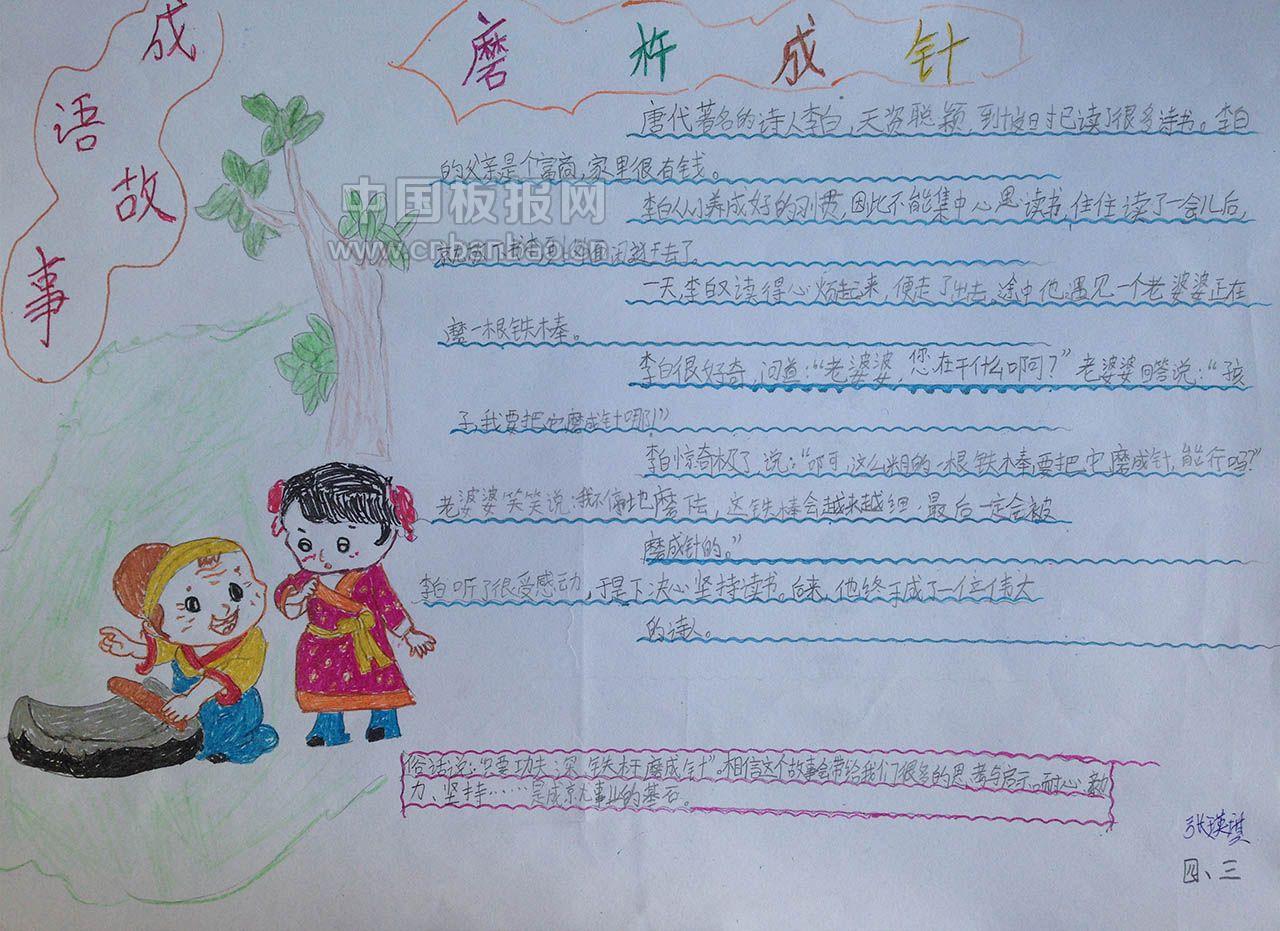 成语故事
磨杵成针
唐代著名的诗人李白,天资聪颖,到十岁时已读了很多诗书。李白
的父亲是个富商,家里很有钱。
李白从小养成好的习惯,因此不能集中心思读书,住住读了一会儿后,
外面闲逛去了。
一天,李白又读得心烦起来,便走了出去。途中他遇见一个老婆婆正在
磨一根铁棒。
李白很好奇,问道:“老婆婆,您在干什么啊?”老婆婆回答说:“孩
子,我要把它磨成针哪!”
李白惊奇极了,说:“哎呀,这么粗的一根铁棒,要把它磨成针,能行吗?”
老婆婆笑笑说:我不停地磨下去,这铁棒会越来越细,最后一定会被
磨成针的。”
李白听了很受感动,于是下决心坚持读书。后来,他终于成了一位伟大
的诗人。
俗话说:“只要功夫深,铁杵磨成针”。相信这个故事会带给我们很多的思考与启示。耐心、毅
力、坚持……是成就事业的基石。
张瑛琪
四、三
中国板报网
www.cnbanbao.cn